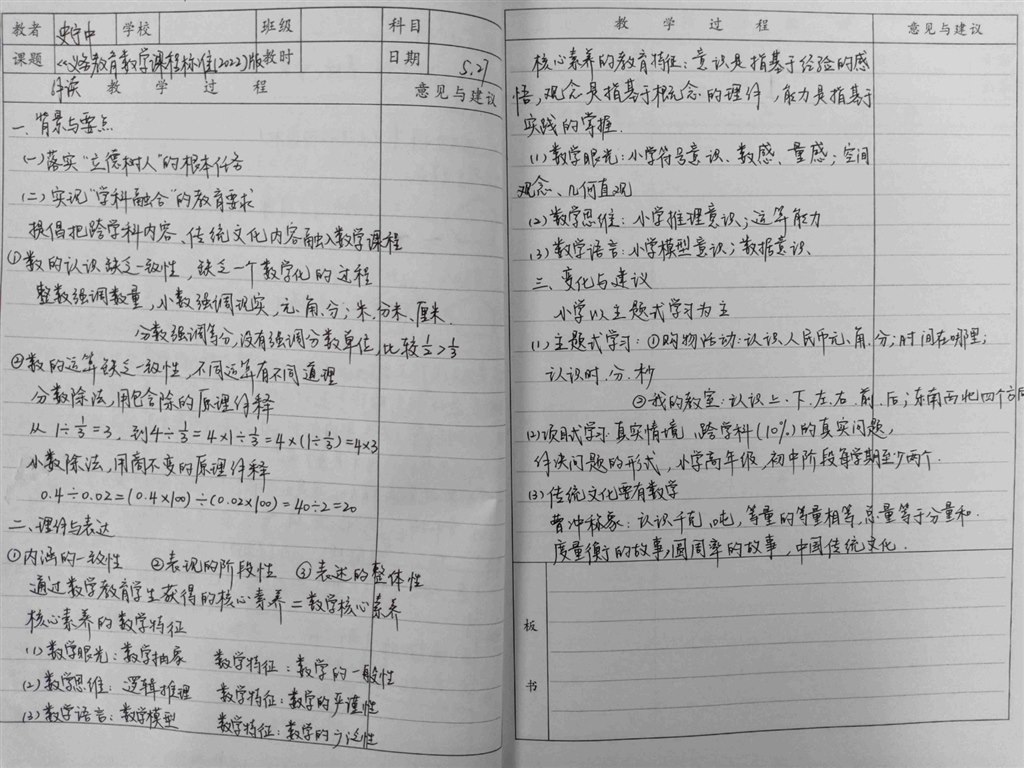 教者 史宁中 学校 班级 科目
课题 《义务教育数学课程标准(2022)版 教时 日期 5.21
解读 教学过程 意见与建议
一、背景与要点
(一)落实“立德树人”的根本任务
(二)实现“学科融合”的教育要求
提倡把跨学科内容、传统文化内容融入数学课程
①数的认识缺乏一致性，缺乏一个数学化的过程
整数强调数量，小数强调现实，元、角、分；米、分米、厘米.
分数强调等分，没有强调分数单位，比较1/2>1/3
②数的运算缺乏一致性，不同运算有不同道理
分数除法，用包含除的原理解释
从 1÷1/3=3，到4÷1/3=4×1÷1/3=4×(1÷1/3)=4×3
小数除法，用商不变的原理解释
0.4÷0.02=(0.4×100)÷(0.02×100)=40÷2=20
二、理解与表达
①内涵的一致性 ②表现的阶段性 ③表述的整体性
通过数学教育学生获得的核心素养=数学核心素养
核心素养的数学特征
(1)数学眼光：数学抽象 数学特征：数学的一般性
(2)数学思维：逻辑推理 数学特征：数学的严谨性
(3)数学语言：数学模型 数学特征：数学的广泛性
教学过程 意见与建议
核心素养的教育特征：意识是指基于经验的感
悟，观念是指基于概念的理解，能力是指基于
实践的掌握.
(1)数学眼光：小学符号意识、数感、量感；空间
观念、几何直观
(2)数学思维：小学推理意识；运算能力
(3)数学语言：小学模型意识；数据意识、
三、变化与建议
小学以主题式学习为主
(1)主题式学习：①购物活动：认识人民币元、角、分；时间在哪里；
认识时、分、秒
②我的教室：认识上、下、左、右、前、后；东南西北四个方向
(2)项目式学习：真实情境，跨学科(10%)的真实问题，
解决问题的形式，小学高年级，初中阶段每学期至少两个.
(3)传统文化要有数学
曹冲称象：认识千克、吨，等量的等量相等，总量等于分量和.
度量衡的故事，圆周率的故事，中国传统文化.
板
书